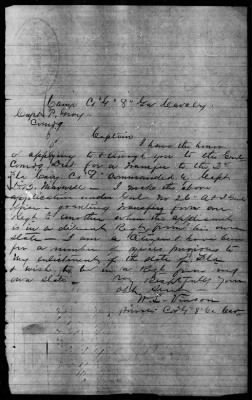 Camp Co "G" 8" Ga Cavalry
Capt P.
Comdg
Captain
I have the honor
of applying to & through you to the Genl
Comdg Dist for a Transfer to the 2"
Fla Cav Co "F" Commanded by Capt
I make the above
application under Genl No 26 A & I Genl
granting Transfers from one
Regt to another when the applicant
is in a different Regt from his own
state I am a Citizen & have been
for a number of years previous to
my enlistment of the state of Fla
& wish to be in a Regt from my
own state
Very Respectfully Your
obt Servt
W. L. Vinson
Private Co G 8" Ga Cav